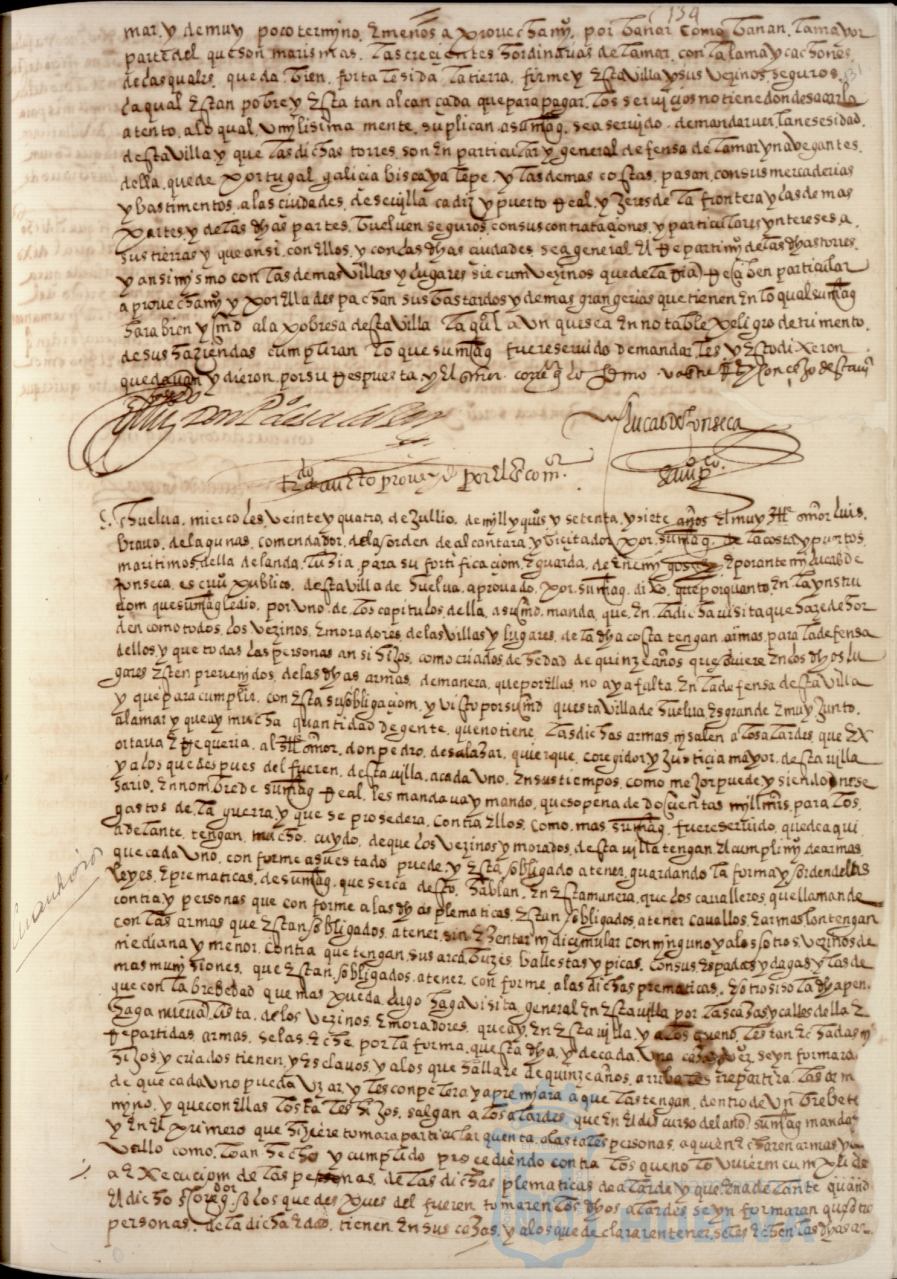 134
mar, y demuy poco termyno, E menos aprovechamyº, por bañar como bañan, lamayor
parte del que son marismas, las crecientes hordinarias de lamar, con lalama y cachones
delas quales, queda bien, fortalesida latierra, firme y Esta villa y sus vezinos, seguros.
la qual Estan pobre y Esta tan alcançada que para pagar, los serviçios no tiene donde sacarlo
atento, alo qual, umylisima mente, suplican asumag, sea servido, demandar ver, lanesesidad,
desta villa y que las dichas torres, son En particular y general defensa delamar y navegantes,
della, que de portugal galicia biscaya lepe, y las demas costas, pasan, con sus mercaderias
y bastimentos, alas ciudades, de sevylla cadiz y puerto Real y Xeres de la frontera y las demas
partes y de las dhas partes, buelven seguros, con sus contrataçiones, y particulares yntereses a
sus tierras y que ansi, con Ellos, y con las dhas ciudades, sea general El Repartimyº de las dhas torres,
y ansimysmo con las demas villas y lugares, sircumvezinos que de la dha Resçiben particular
aprovechamyº y por Ella despachan sus bastardos y demas grangerias que tienen En lo qual sumag
hara bien y md ala pobresa desta villa laql aunque sea En notable peligro detrimento,
de sus haziendas cumpliran lo que sumag fuere servido demandar les y Esto dixeron
que davan y dieron, por su Respuesta y El señor corregº lo firmo
lucas de fonseca
escrivº puco
trdo auto proveydo por El sº comor.
En huelva, miercoles, veinte y quatro, de Jullio, de myll y quis y setenta, y siete años El muy Ille señor Luis,
bravo, delagunas, comendador, dela horden de alcantara, y viçitador por sumag de lacosta y puertos,
maritimos, della del andaluzia, para su fortificaciom, E guarda, de Enemygos E por ante my lucas de
fonseca, es crivº publico, desta villa de huelva, aprovado, por sumag, dixo, que por quanto, En la ynstru
ciom que sumag le dio, por uno, de los capitulos della, a sumd, manda, que, En la dicha visita que haze de hor
den como todos, los vezinos, E moradores, de las villas y lugares, de la dha costa tengan, armas, para la defensa
dellos y que todas las personas ansi hijos, como criados de hedad de quinze años que oviere En los dhos lu
gares Esten proveydos, de las dhas armas, demanera, que por Ellas, no aya falta, En la defensa desta villa
y que para cumplir, con Esta su obligaciom, y visto por sumd questa villa de huelva, Es grande E muy Junto,
alamar y que ay mucha quantidad de gente, que no tiene, las dichas armas, ny salen a los alardes, que EX
ortava E Requeria, al Ille señor, don pedro, desalazar, coregidor y Justicia mayor, desta villa
y a los que despues del fueren, desta villa, acada uno, En sus tiempos, como mejor puede y siendo nese
sario, En nombre de sumag Real, les mandava y mando, que so pena de dosçientas myll mrs, para los,
gastos de, la guerra, y que se prosedera, contra Ellos, como, mas sumag, fuere servido, que de aqui
adelante, tengan, mucho, cuydo, de que los vezinos y moradors, desta villa tengan El cumplimyº de armas,
que cada uno, conforme a su estado puede y Esta obligado a tener, guardando la forma y horden de las
leyes, E prematicas, de sumag, que serca desto, hablan, En Esta manera, que los cavalleros, que llaman de
contia y personas que conforme a las dhas plematicas, Estan obligados, a tener cavallos, E armas, los tengan
con las armas que Estan obligados, a tener, sin Exentar ny dicimular con nynguno y a los otros vezinos de
mediana y menor, contia que tengan, sus arcabuzes, ballestas y picas, con sus, Espadas y dagas y las de
mas munysiones, que Estan, obligados, a tener, con forme, a las dichas prematicas, E so la dha pen,
que con la brebedad que mas pueda, haga visita, general En Esta villa por las casas y calles della E
haga nueva lista, de los vezinos, E moradores, que ay, En Esta villa, y a los que no, les tan Echadas ny
Repartidas armas, se las Eche por la forma, questa dha, y de cada una se ynformara
hijos y criados tienen, y Esclavos, y a los que hallare de quinze años, arriba les repartira, las arm
de que cada uno pueda uzar, y les conpelera y apremyara a que las tengan, dentro de Un brebe te
myno, y que con Ellas los tales hijos, salgan a los alardes, que En El discurso del año, sumag mandar
y En El primero que hiziere tomara particular quenta, a las tales personas, a quien Echaren armas y
vello como, loan hecho y cumplido procediendo contra los que no lo uvierem cumplido
a Execuciom de las penas, de las dichas plematicas de alarde y que En adelante quand
El dicho s coregdor, o los que despues del fueren tomaren los dhos alardes se yn formaran que otro
personas, de la dicha Edad, tienen En sus casas, y a los que declararen tener, se les Echen las dhas ar
HUELVA